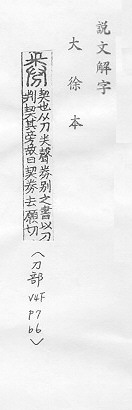 説文解字
大徐本
券
契也从刀𢍏聲券別之書以刀
判契其㫄故曰契券去願切
(刀部
V4F
P7
b6)